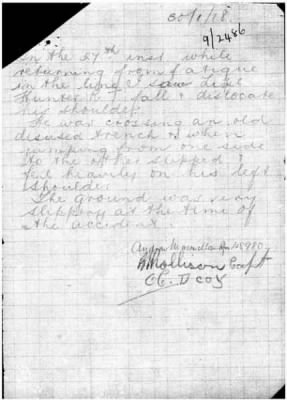 30/1/18
9/2486
On the 27th inst while
returning from fatigue
in the line I saw
Hunter R. J. fall & dislocate
his shoulder.
He was crossing an old
disused trench & when
jumping from one side
to the other slipped &
fell heavily on his left
shoulder.
The ground was very
slippery at the time of
the accident.
Mollison Capt
D Coy